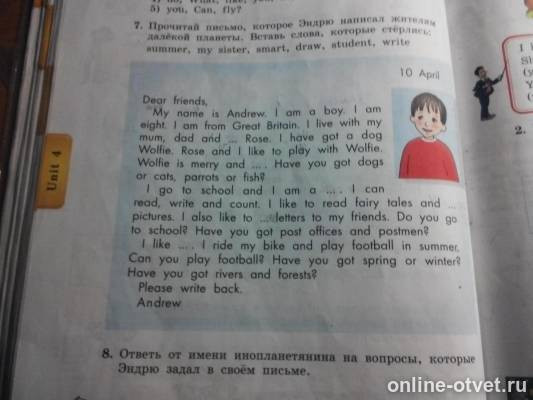 5) you, Can, fly?
7. Прочитай письмо, которое Эндрю написал жителям
далёкой планеты. Вставь слова, которые стёрлись:
summer, my sister, smart, draw, student, write
10 April
Dear friends,
My name is Andrew. I am a boy. I am
eight. I am from Great Britain. I live with my
mum, dad and ... Rose. I have got a dog
Wolfie. Rose and I like to play with Wolfie.
Wolfie is merry and ... . Have you got dogs
or cats, parrots or fish?
I go to school and I am a ... . I can
read, write and count. I like to read fairy tales and ...
pictures. I also like to ... letters to my friends. Do you go
to school? Have you got post offices and postmen?
I like ... . I ride my bike and play football in summer.
Can you play football? Have you got spring or winter?
Have you got rivers and forests?
Please write back.
Andrew
Unit 4
8. Ответь от имени инопланетянина на вопросы, которые
Эндрю задал в своём письме.
2.
online-otvet.ru